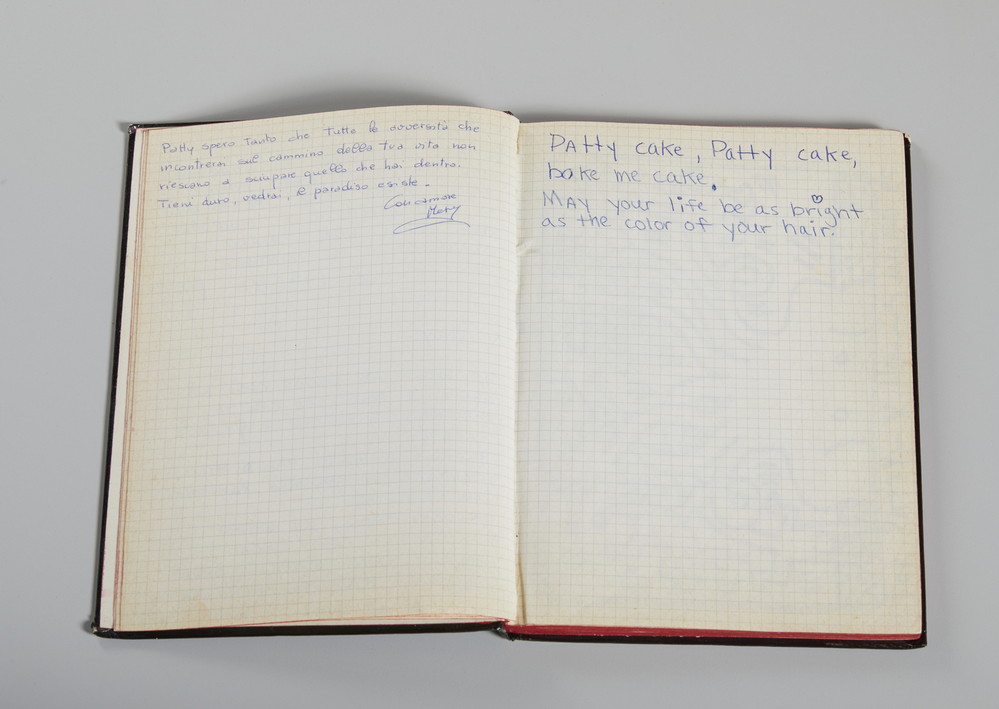 Patty spero tanto che tutte le avversità che
incontrerai sul cammino della tua vita non
riescano a sciupare quello che hai dentro.
Tieni duro, vedrai, il paradiso esiste.
Con amore
Mary
Patty cake, Patty cake,
bake me cake.
May your life be as bright
as the color of your hair.